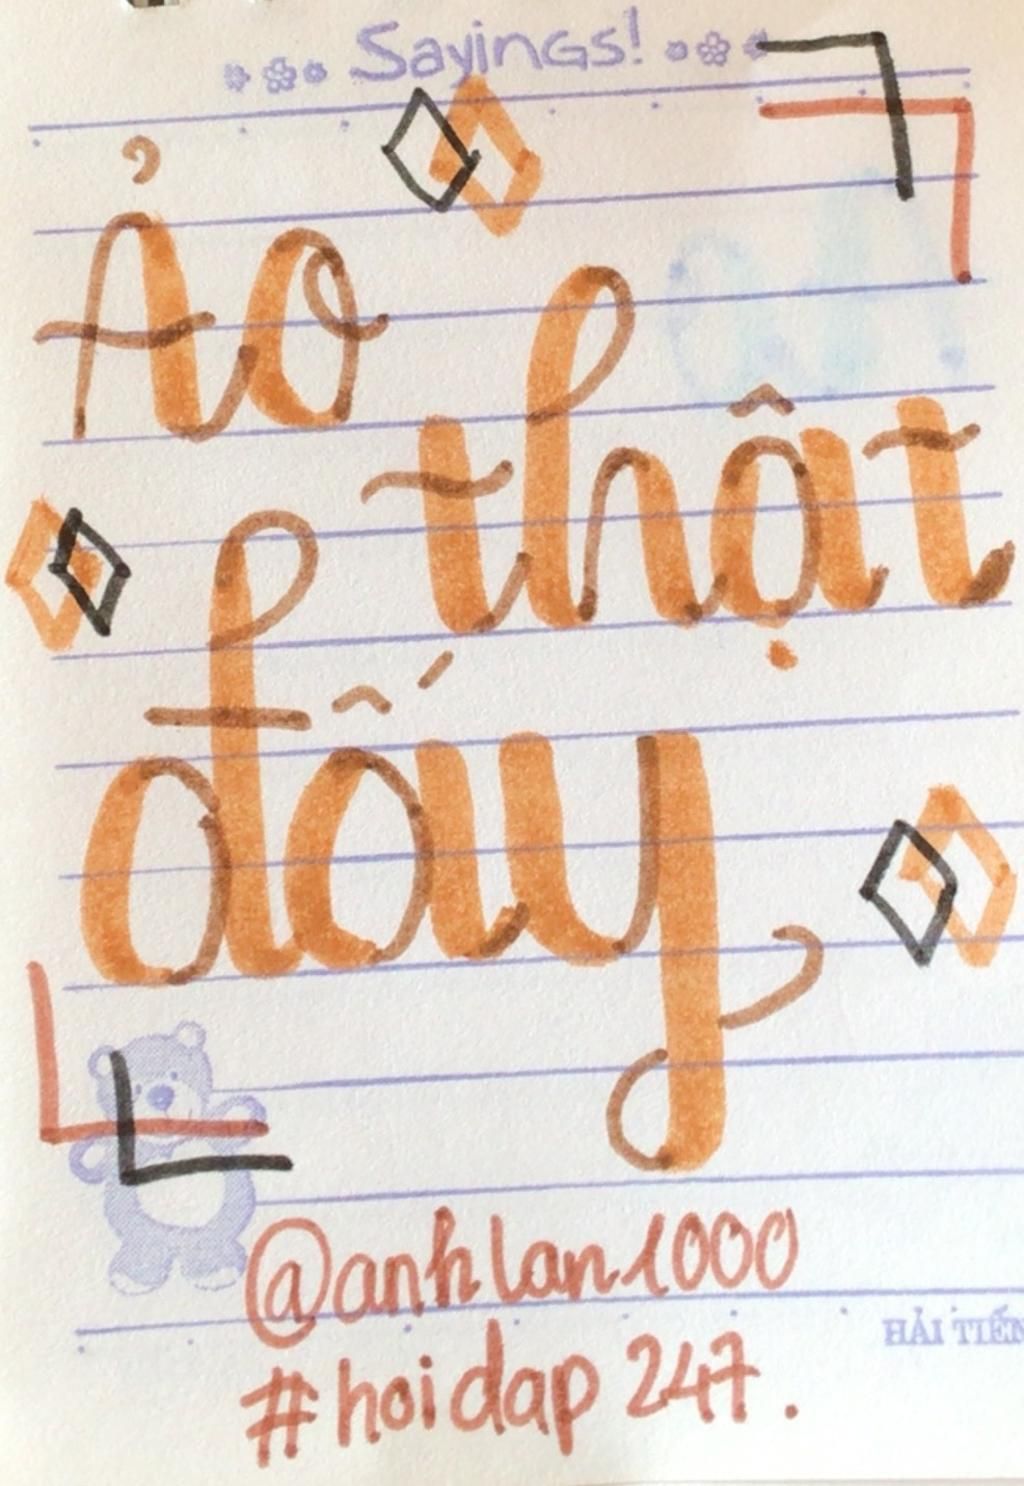 Sayings!
Ảo
thật
đấy
@anhlan1000
#hoidap247.
HẢI TIẾN